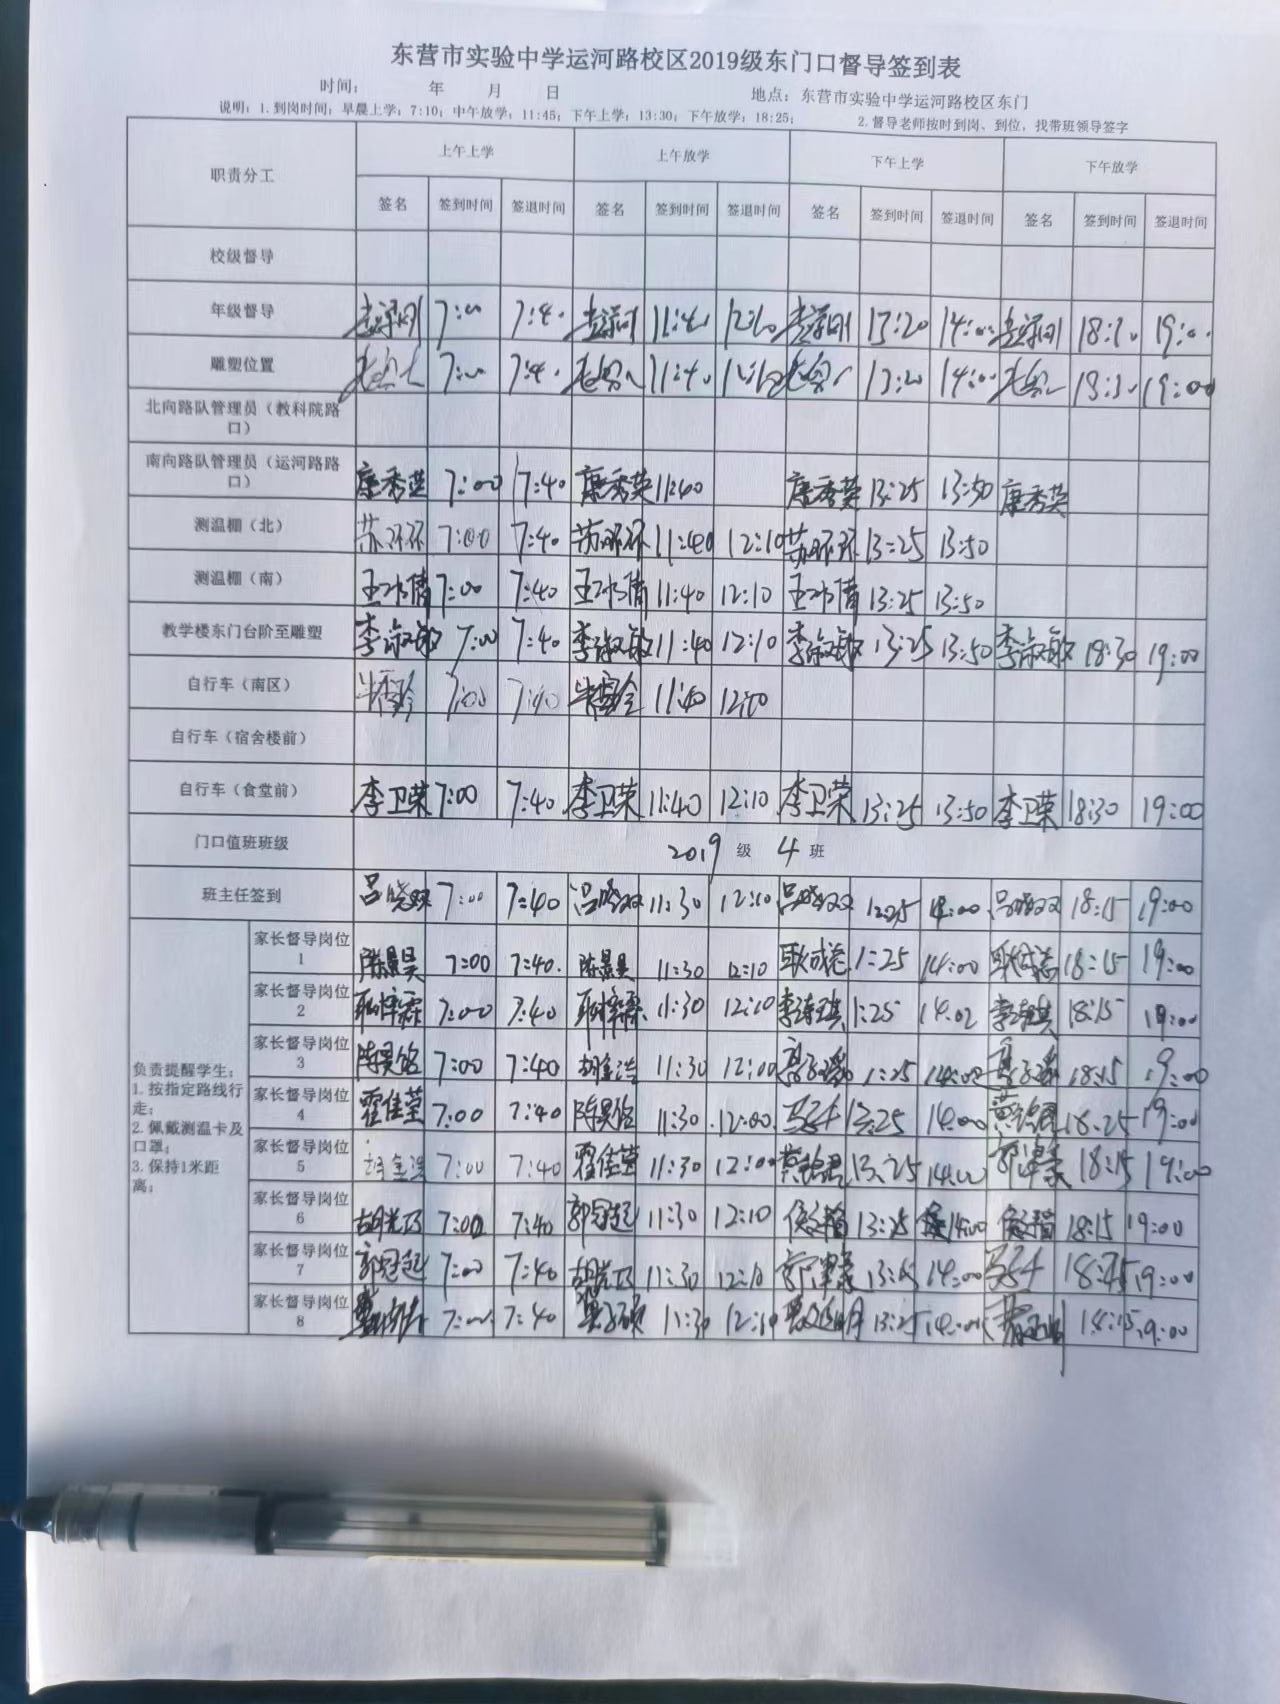 东营市实验中学运河路校区2019级东门口督导签到表
时间： 年 月 日 地点：东营市实验中学运河路校区东门
说明：1.到岗时间：早晨上学：7:10；中午放学：11:45；下午上学：13:30；下午放学：18:25； 2.督导老师按时到岗、到位，找带班领导签字
职责分工 上午上学 上午放学 下午上学 下午放学
签名 签到时间 签退时间 签名 签到时间 签退时间 签名 签到时间 签退时间 签名 签到时间 签退时间
校级督导
年级督导 7:00 7:40 11:40 12:10 13:20 14:00 18:30 19:00
雕塑位置 7:00 7:40 11:40 12:10 13:20 14:00 18:30 19:00
北向路队管理员（教科院路口）
南向路队管理员（运河路路口） 康秀英 7:00 7:40 康秀英 11:40 康秀英 13:25 13:50 康秀英
测温棚（北） 苏环环 7:00 7:40 苏环环 11:40 12:10 苏环环 13:25 13:50
测温棚（南） 7:00 7:40 11:40 12:10 13:25 13:50
教学楼东门台阶至雕塑 李淑敏 7:00 7:40 李淑敏 11:40 12:10 李淑敏 13:25 13:50 李淑敏 18:30 19:00
自行车（南区） 7:00 7:40 11:40 12:10
自行车（宿舍楼前）
自行车（食堂前） 李卫荣 7:00 7:40 李卫荣 11:40 12:10 李卫荣 13:25 13:50 李卫荣 18:30 19:00
门口值班班级 2019 级 4 班
班主任签到 吕晓双 7:00 7:40 吕晓双 11:30 12:10 吕晓双 14:00 吕晓双 18:15 19:00
负责提醒学生：
1.按指定路线行走；
2.佩戴测温卡及口罩；
3.保持1米距离；
家长督导岗位1 陈景昊 7:00 7:40. 陈景昊 11:30 12:10 1:25 14:00 18:15 19:00
家长督导岗位2 耿梓霖 7:00 7:40 耿梓霖 11:30 12:10 1:25 14:02 18:15 19:00
家长督导岗位3 陈昊铭 7:00 7:40 胡金浩 11:30 12:00 1:25 14:00 18:15 19:00
家长督导岗位4 霍佳莹 7:00 7:40 陈昊铭 11:30 12:00 13:25 14:00 18:25 19:00
家长督导岗位5 胡金浩 7:00 7:40 霍佳莹 11:30 12:00 13:25 14:00 18:15 19:00
家长督导岗位6 7:00 7:40 郭冠超 11:30 12:10 13:25 14:00 18:15 19:00
家长督导岗位7 郭冠超 7:00 7:40 11:30 12:10 14:00 19:00
家长督导岗位8 7:00 7:40 11:30 12:10 13:25 14:00 19:00